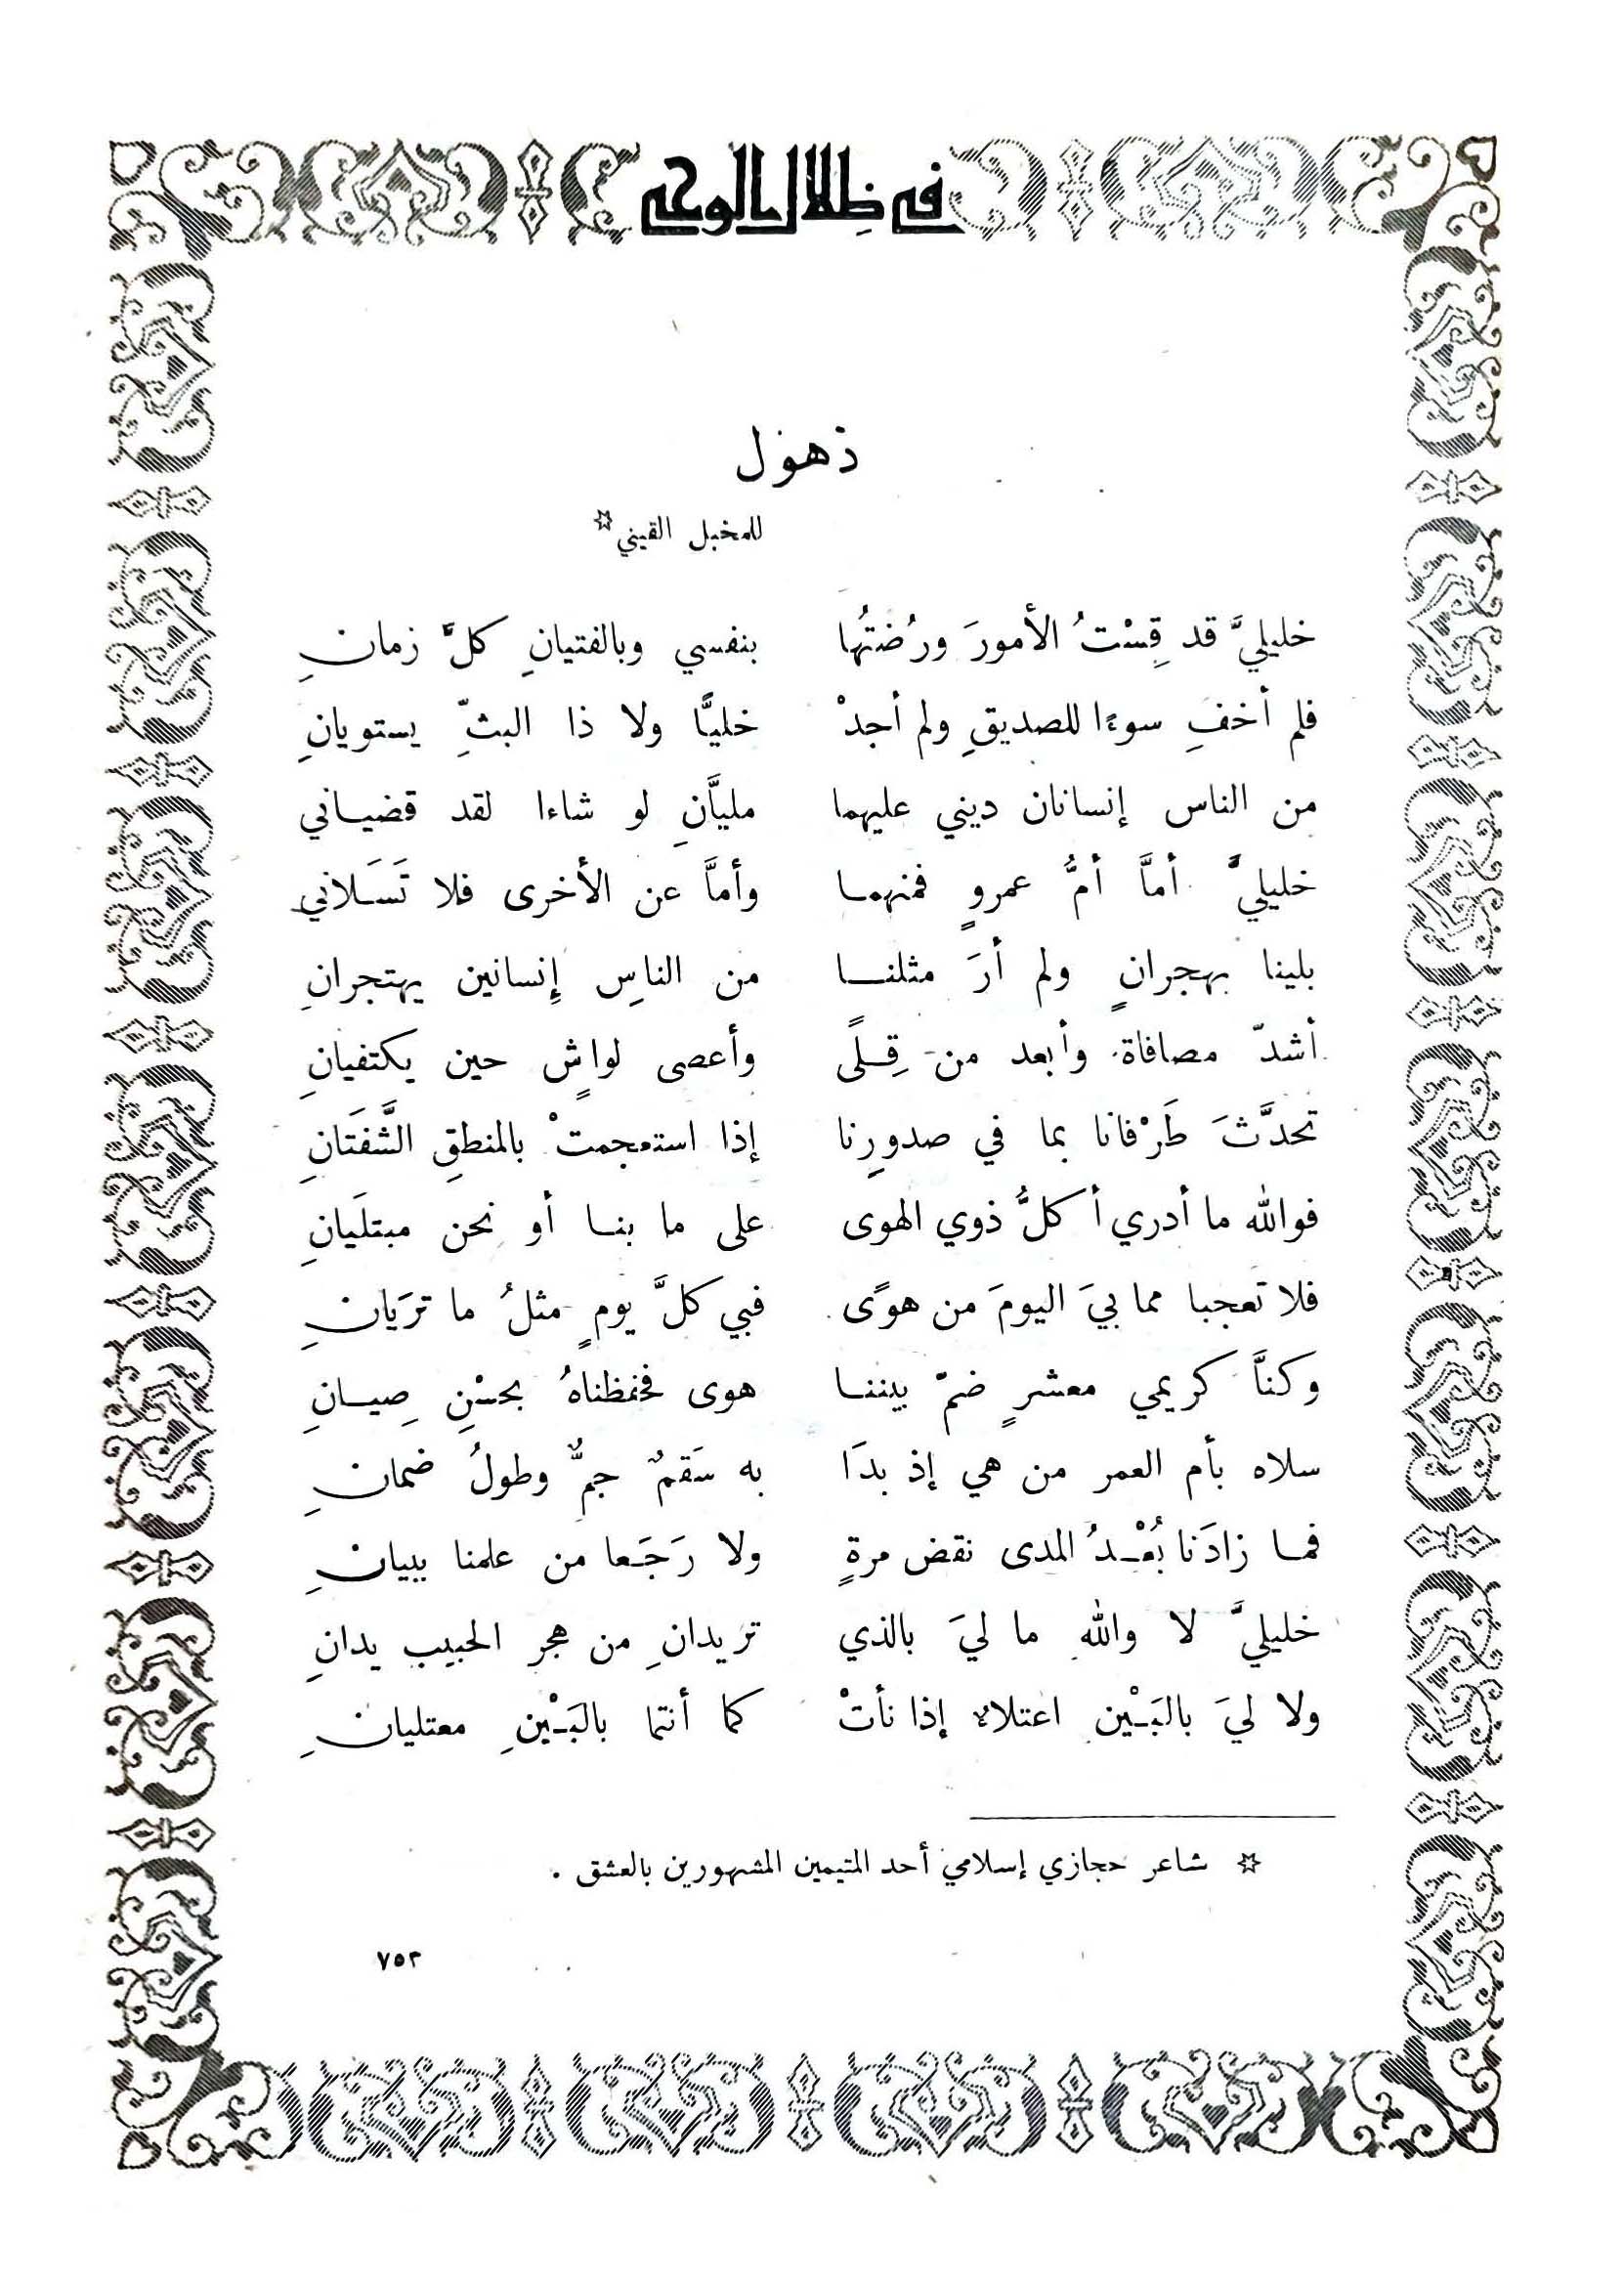 في ظلال الوحي
ذهول
للمخبل القيني☆
خليليَّ قد قِسْتُ الأمورَ ورُضتُها بنفسي وبالفتيانِ كلَّ زمانِ
فلم أخفِ سوءًا للصديقِ ولم أجدْ خليًّا ولا ذا البثِّ يستويانِ
من الناس إنسانان ديني عليهما مليَّانِ لو شاءا لقد قضياني
خليليَّ أمَّا أمُّ عمروٍ فمنهما وأمَّا عن الأخرى فلا تَسَلاني
بلينا بهجرانٍ ولم أرَ مثلنا من الناسِ إِنسانين يهتجرانِ
أشدّ مصافاة وأبعد من قِلًى وأعصى لواشٍ حين يكتفيانِ
تحدَّثَ طَرْفانا بما في صدورِنا إذا استعجمتْ بالمنطقِ الشَّفَتَانِ
فوالله ما أدري أكلُّ ذوي الهوى على ما بنا أو نحن مبتلَيانِ
فلا تعجبا مما بيَ اليومَ من هوًى فبي كلَّ يومٍ مثلُ ما ترَيانِ
وكنَّا كريمي معشرٍ ضمّ بيننا هوى فحفظناهُ بحسْنِ صِيانِ
سلاه بأم العمر من هي إذ بدَا به سَقمٌ جمٌّ وطولُ ضمانِ
فما زادَنا بُعْدُ المدى نقض مرةٍ ولا رَجَعا من علمنا ببيانِ
خليليَّ لا والله ما ليَ بالذي تريدانِ من هجر الحبيب يدانِ
ولا ليَ بالبَيْن اعتلاء إذا نأتْ كما أنتما بالبَيْنِ معتليانِ
☆ شاعر حجازي إسلامي أحد المتيمين المشهورين بالعشق .
٧٥٣